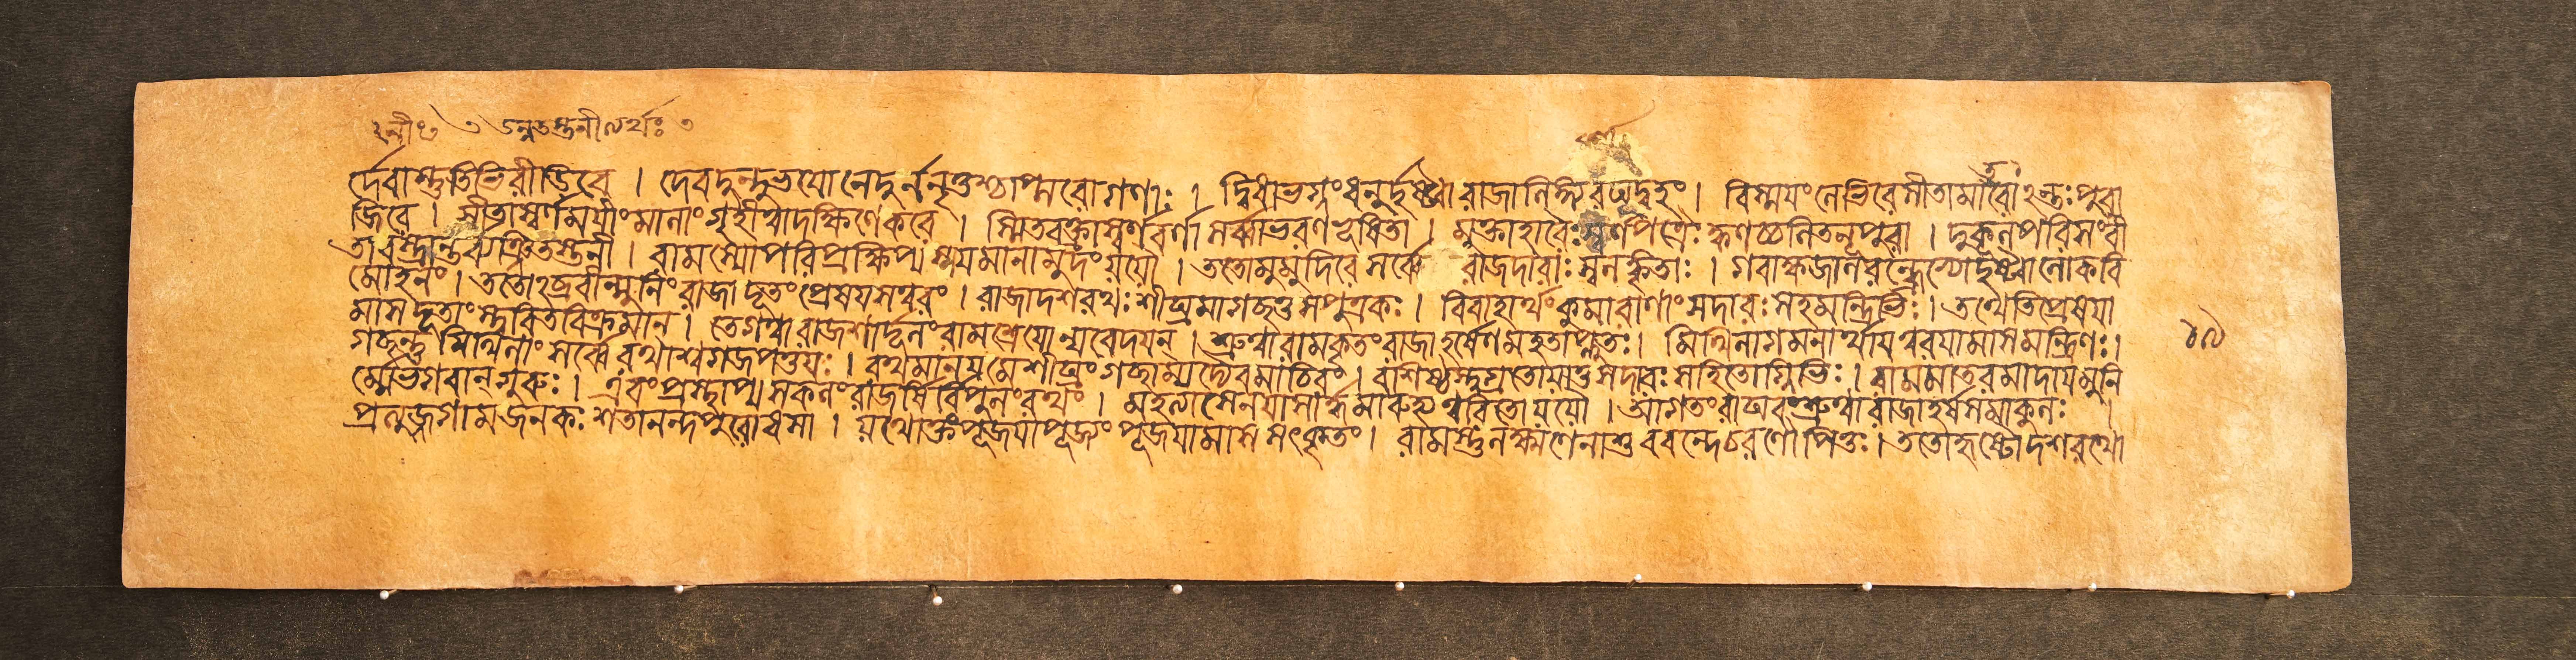 র্দেবাস্তুতিভিরীডিরে । দেবদুন্দুভয়োনেদুর্ননৃতুশ্চাপ্সরোগণাঃ । দ্বিধাভগ্নংধনুর্দৃষ্ট্বারাজালিঙ্গ্যরঘূদ্বহং । বিস্ময়ংলেভিরেসীতামাতরোঽন্তঃপুরা
জিরে । সীতাস্বর্ণময়ীংমালাংগৃহীত্বাদক্ষিণেকরে । স্মিতবক্ত্রাস্বর্ণবর্ণাসর্ব্বাভরণভূষিতা । মুক্তাহারৈঃস্বর্ণপত্রৈঃক্বণচ্চলিতনূপুরা । দুকূলপরিসংবী
তাবস্ত্রান্তব্যঞ্জিতস্তনী । রামস্যোপরিপ্রক্ষিপ্যস্ময়মানামুদংযযৌ । ততোমুমুদিরেসর্ব্বে রাজদারাঃস্বলঙ্কৃতাঃ । গবাক্ষজালরন্ধ্রেভ্যোদৃষ্ট্বালোকবি
মোহনং । ততোঽব্রবীন্মুনিংরাজাদূতংপ্রেষয়সত্বরং । রাজাদশরথঃশীঘ্রমাগচ্ছতুসপুত্রকঃ । বিবাহার্থংকুমারাণাংসদারঃসহমন্ত্রিভিঃ । তথেতিপ্রেষয়া
মাসদূতাংস্ত্বরিতবিক্রমান্ । তেগত্বারাজশার্দূলংরামশ্রেয়োন্যবেদয়ন্ । শ্রুত্বারামকৃতংরাজাহর্ষেণমহতাপ্লুতঃ । মিথিলাগমনার্থায়ত্বরয়ামাসমন্ত্রিণঃ ।
গচ্ছন্তুমিথিলাংসর্ব্বেরথাশ্বগজপত্তয়ঃ । রথমানয়মেশীঘ্রংগচ্ছাম্যদ্যৈবমাচিরং । বাশিষ্ঠস্তুগ্রতোয়াতুসদারঃসহিতোগ্নিভিঃ । রামমাতৃরমাদায়মুনি
র্ম্মেভগবান্গুরুঃ । এবংপ্রস্থাপ্যসকলংরাজর্ষির্বিপুলংরথং । মহত্যাসেনয়াসার্দ্ধমারুহ্যত্বরিতোযযৌ । আগতংরাঘবংশ্রুত্বারাজাহর্ষসমাকুলঃ ।
প্রত্যুজ্জগামজনকঃশতানন্দপুরোধসা । যথোক্তংপূজয়াপূজ্যংপূজয়ামাসসৎকৃতং । রামস্তুলক্ষ্মণেনাশুববন্দেচরণৌপিতুঃ । ততোহৃষ্টোদশরথো